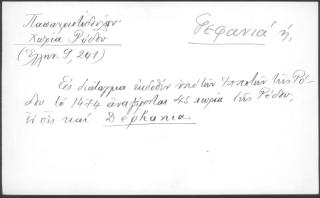 Παπαχριστοδούλου
Χωρία Ρόδου
(Ἑλλην. 9, 241)
Ρεφανιά ἡ,
Εἰς διάταγμα ἐκδοθὲν ὑπὸ τῶν Ἱπποτῶν τῆς Ρό-
δου τὸ 1474 ἀναφέρονται 45 χωρία τῆς Ρόδου,
ἐν οἷς καὶ Dephania.